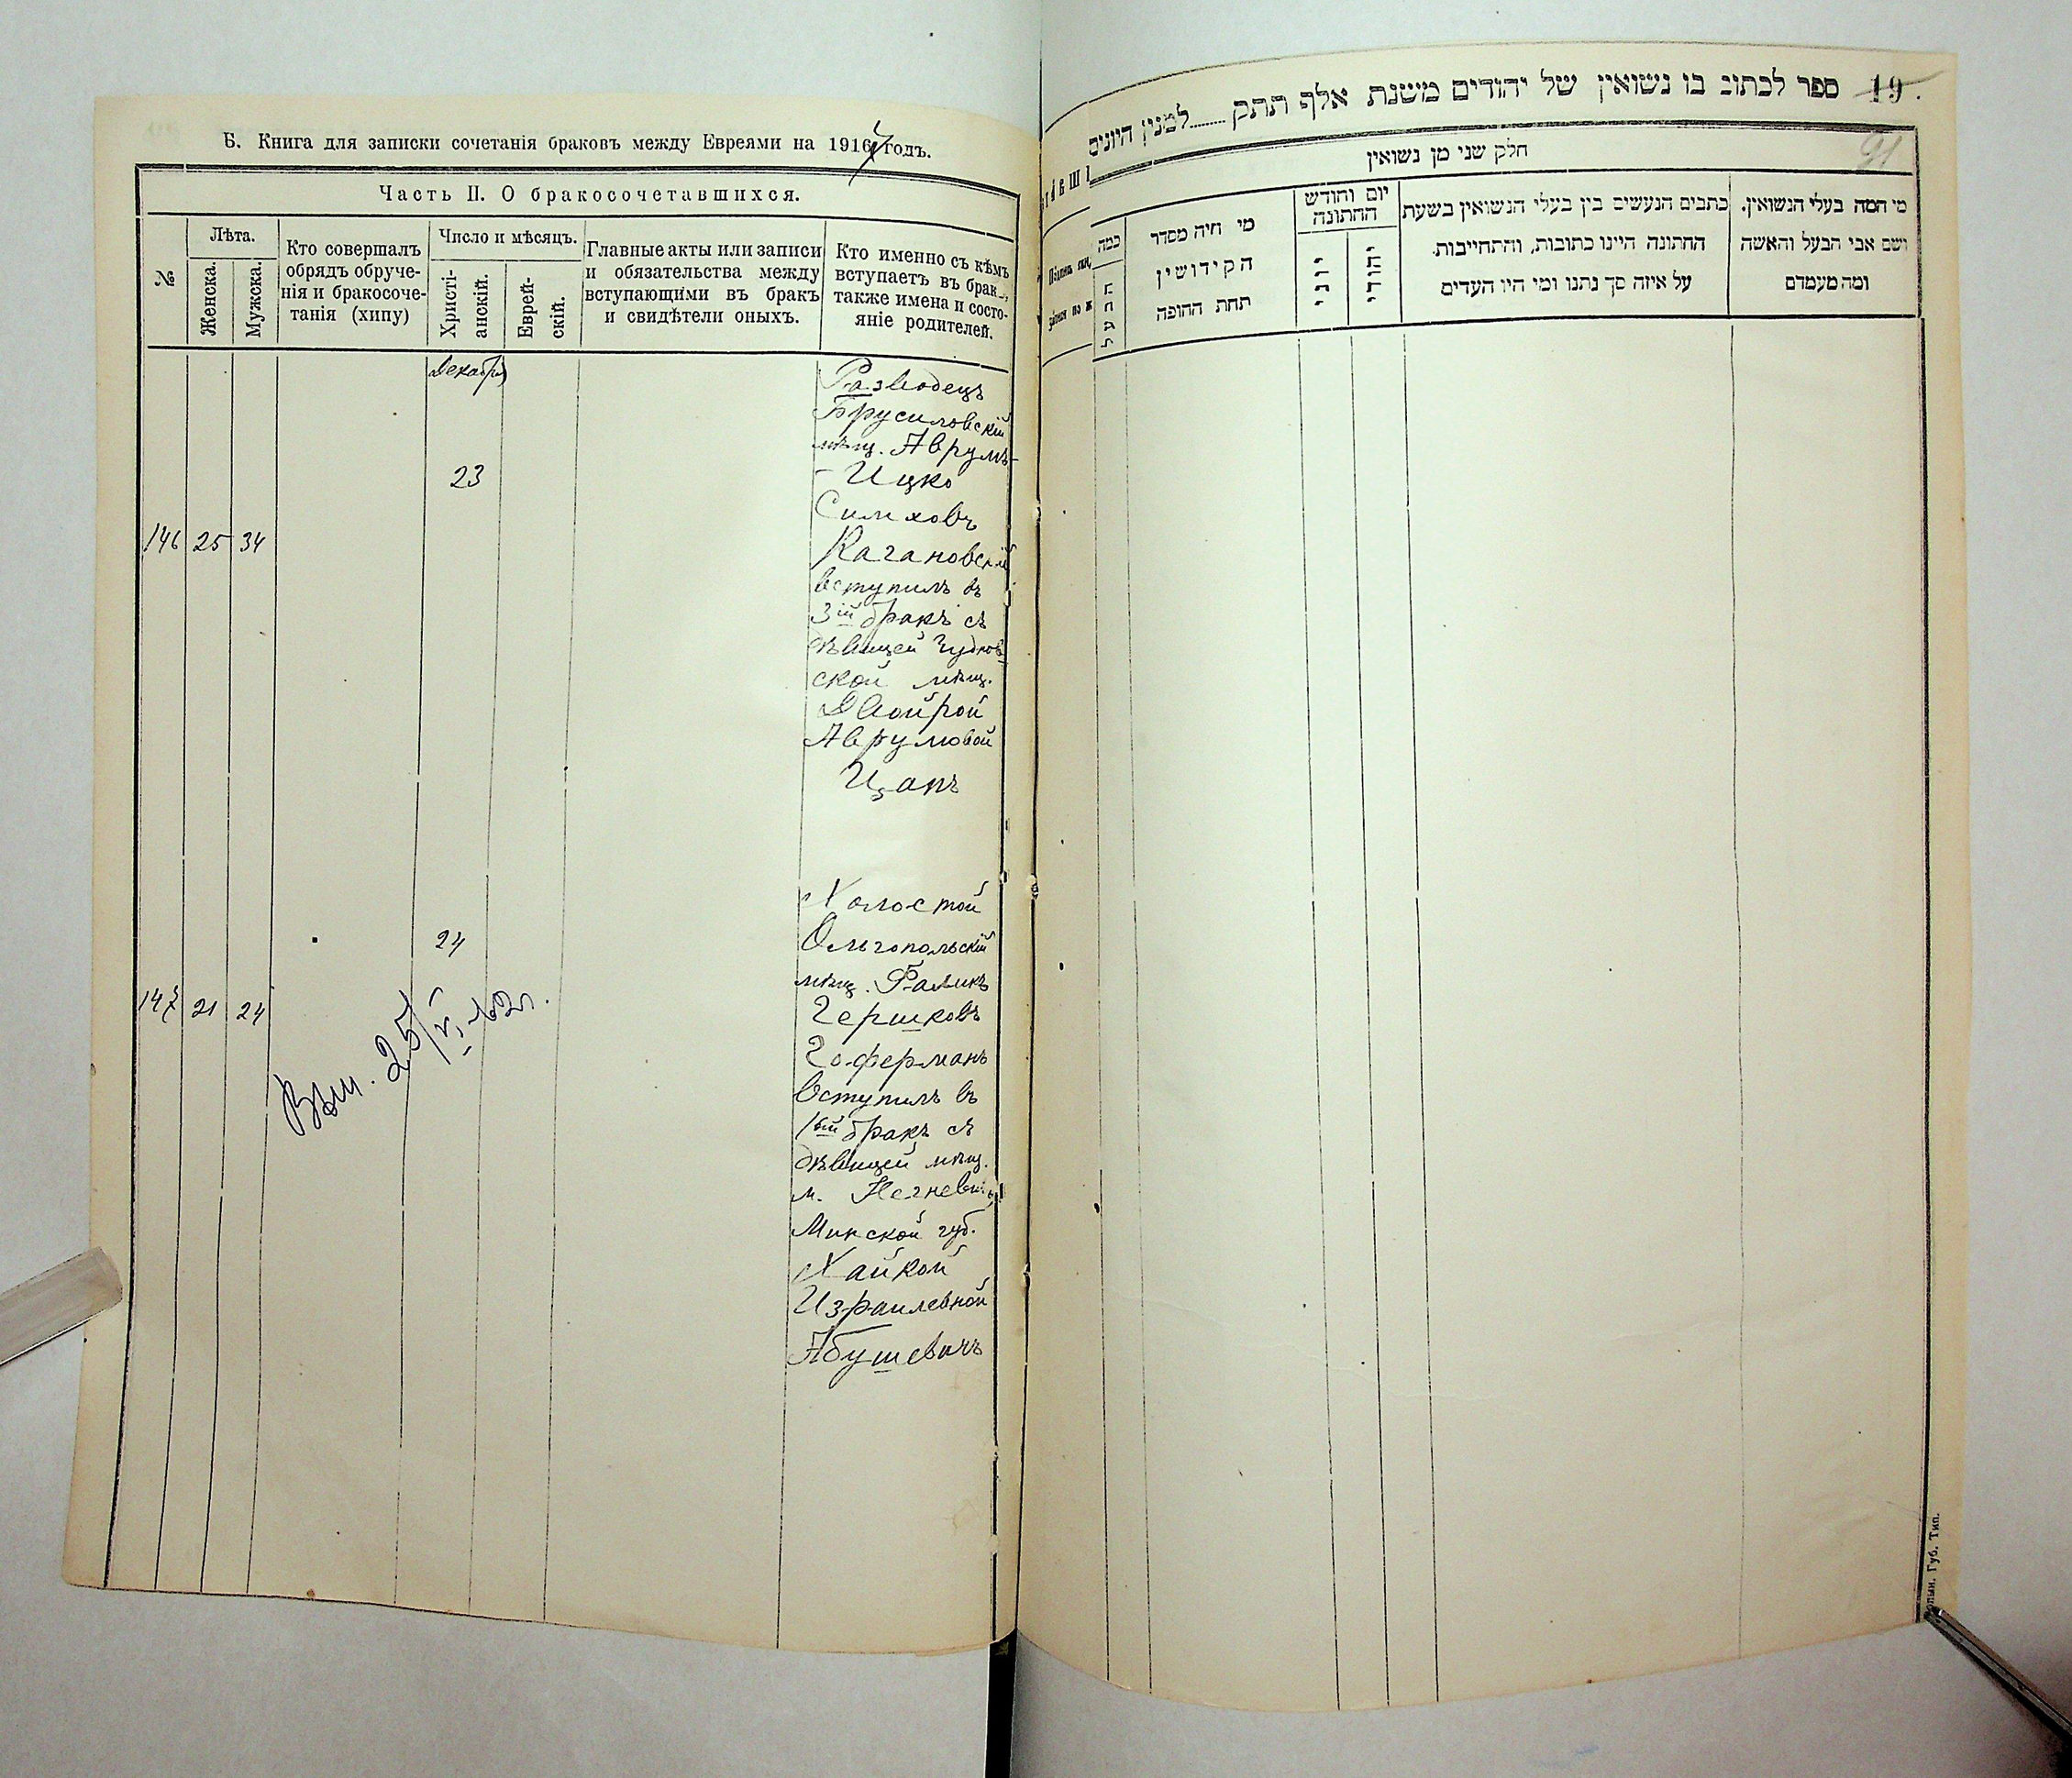 Б. Книга для записки сочетанія браковъ между Евреями на 1917 годъ.
Часть II. О бракосочетавшихся.
№
Лѣта.
Женска.
Мужска.
Кто совершалъ
обрядъ обруче-
нія и бракосоче-
танія (хипу)
Число и мѣсяцъ.
Христі-
анскій.
Еврей-
скій.
Главные акты или записи
и обязательства между
вступающими въ бракъ
и свидѣтели оныхъ.
Кто именно съ кѣмъ
вступаетъ въ брак
также имена и состо-
яніе родителей.
Декабрь
23
146 25 34
Разводецъ
Брусиловскій
мѣщ. Аврумъ-
-Ицко
Симховъ
Кагановскій
вступилъ въ
3ій бракъ съ
дѣвицей Чуднов-
ской мѣщ.
Двойрой
Аврумовой
Цапъ
24
147 21 24
Холостой
Ольгопольскій
мѣщ. Фаликъ
Гершковъ
Гоферманъ
вступилъ въ
1ый бракъ съ
дѣвицей мѣщ.
м. Негневичи
Минской губ.
Хайкой
Израилевной
Абушевичъ
19.
ספר לכתוב בו נשואין של יהודים משנת אלף תתק........למנין היונים
91
חלק שני מן נשואין
כמה
הבעל
מי היה מסדר
הקידושין
תחת החופה
יום וחודש
החתונה
יוני
יהודי
כתבים הנעשים בין בעלי הנשואין בשעת
החתונה היינו כתובות, והתחייבות
על איזה סך נתנו ומי היו העדים
מי המה בעלי הנשואין,
ושם אבי הבעל והאשה
ומה מעמדם
Губ. Тип.